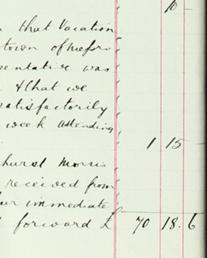 10 -
that Vacation
town of
entative was
& that we
satisfactorily
week attending
1 15 -
hurst Morris
received from
ur immediate
forward £ 70 18 6